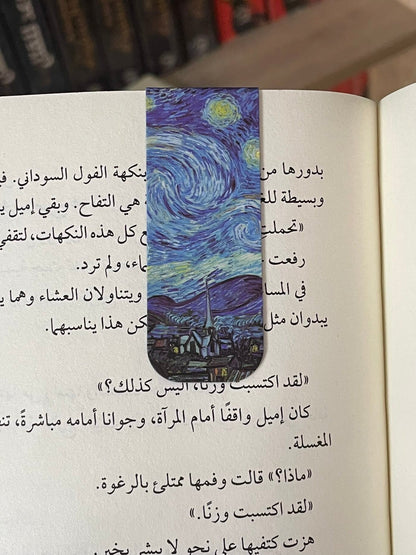 بدورها من بنكهة الفول السوداني.
وبسيطة هي التفاح. وبقي إميل
«تحملت ع كل هذه النكهات، لتقفي
رفعت ماء، ولم ترد.
في ويتناولان العشاء وهما
يبدوان مثل كن هذا يناسبهما.
«لقد اكتسبت وزنًا، أليس كذلك؟»
كان إميل واقفًا أمام المرآة، وجوانا أمامه مباشرةً،
المغسلة.
«ماذا؟» قالت وفمها ممتلئ بالرغوة.
«لقد اكتسبت وزنًا.»
هزت كتفيها على نحو لا يبشر بخير.